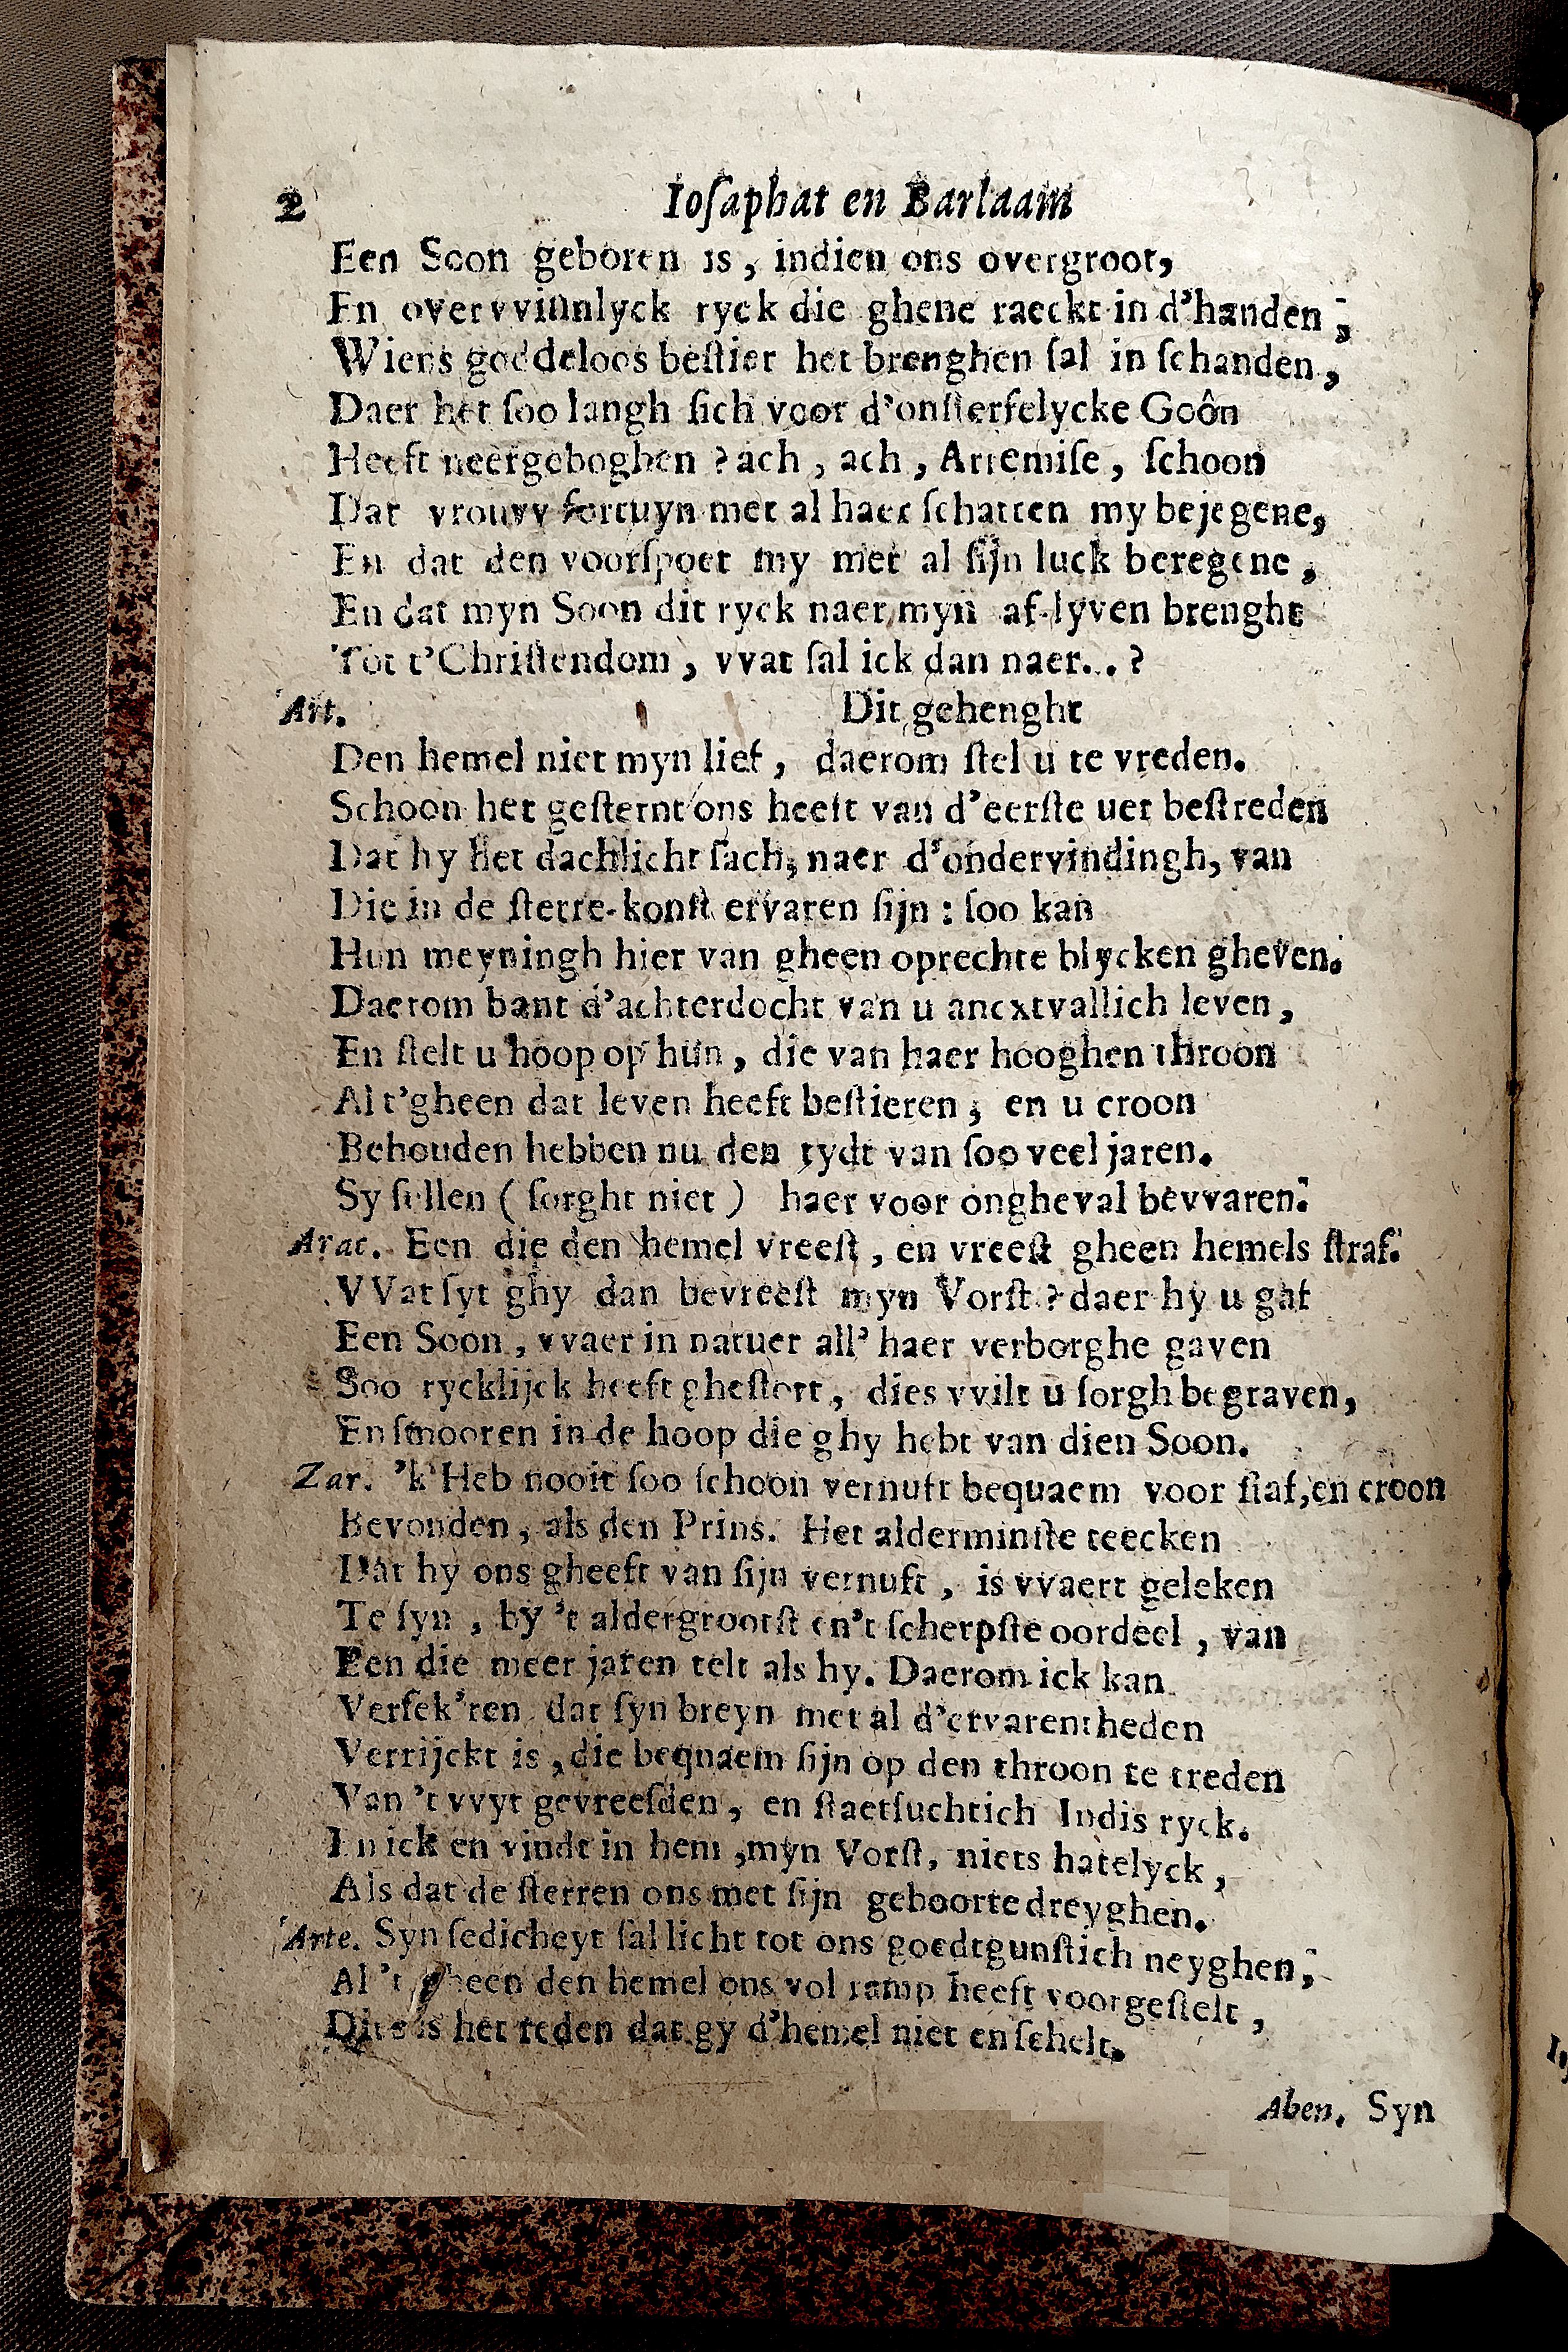 2 Ioſaphat en Barlaam
Een Soon geboren is, indien ons overgroot,
En overvviunlyck ryck die ghene raeckt in d'handen;
Wiens goddeloos beſtier het brenghen ſal in ſchanden,
Daer het ſoo langh ſich voor d'onſterfelycke Goôn
Heeft neergeboghen? ach, ach, Artemiſe, ſchoon
Dat vrouvv fortuyn met al haer ſchatten my bejegene,
En dat den voorſpoet my met al ſijn luck beregene,
En dat myn Soon dit ryck naer myn af-lyven brenght
Tot t'Chriſtendom, vvat ſal ick dan naer..?
Art. Dit gehenght
Den hemel niet myn lief, daerom ſtel u te vreden.
Schoon het geſternt ons heeft van d'eerſte uer beſtreden
Dat hy het dachlicht ſach, naer d'ondervindingh, van
Die in de ſterre-konſt ervaren ſijn: ſoo kan
Hun meyningh hier van gheen oprechte blycken gheven.
Daerom bant d'achterdocht van u ancxtvallich leven,
En ſtelt u hoop op hun, die van haer hooghen throon
Al t'gheen dat leven heeft beſtieren; en u croon
Behouden hebben nu den tydt van ſoo veel jaren.
Sy ſullen (ſorght niet) haer voor ongheval bevvaren.
Arac. Een die den hemel vreeſt, en vreeſt gheen hemels ſtraf.
VVat ſyt ghy dan bevreeſt myn Vorſt? daer hy u gaf
Een Soon, vvaer in natuer all' haer verborghe gaven
Soo rycklijck heeft gheſtort, dies vvilt u ſorgh begraven,
En ſmooren in de hoop die ghy hebt van dien Soon.
Zar. 'k Heb nooit ſoo ſchoon vernuft bequaem voor ſtaf, en croon
Bevonden, als den Prins. Het alderminſte teecken
Dat hy ons gheeft van ſijn vernuft, is vvaert geleken
Te ſyn, by 't aldergrootſt en't ſcherpſte oordeel, van
Een die meer jaren telt als hy. Daerom ick kan
Verſek'ren dat ſyn breyn met al d'ervarentheden
Verrijckt is, die bequaem ſijn op den throon te treden
Van 't vvyt gevreeſden, en ſtaetſuchtich Indis ryck.
En ick en vindt in hem, myn Vorſt, niets hatelyck,
Als dat de ſterren ons met ſijn geboorte dreyghen.
Arte. Syn ſedicheyt ſal licht tot ons goedtgunſtich neyghen,
Al 't gheen den hemel ons vol ramp heeft voorgeſtelt,
Dit is het reden dat gy d'hemel niet en ſchelt.
Aben. Syn